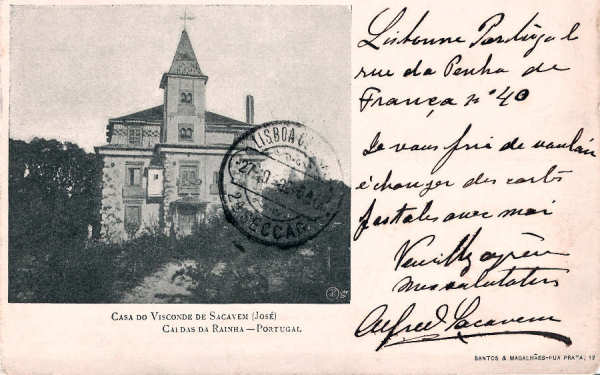 Lisbonne Portugal
rue da Penha de
França nº 40
Je vous prie de vouloir
échanger des carts
postales avec moi
Veuillez agréer
mes salutations
Alfred Sacavem
LISBOA
2ª SECCÃO
CASA DO VISCONDE DE SACAVEM (JOSÉ)
CALDAS DA RAINHA — PORTUGAL
SANTOS & MAGALHÃES-RUA PRATA, 12